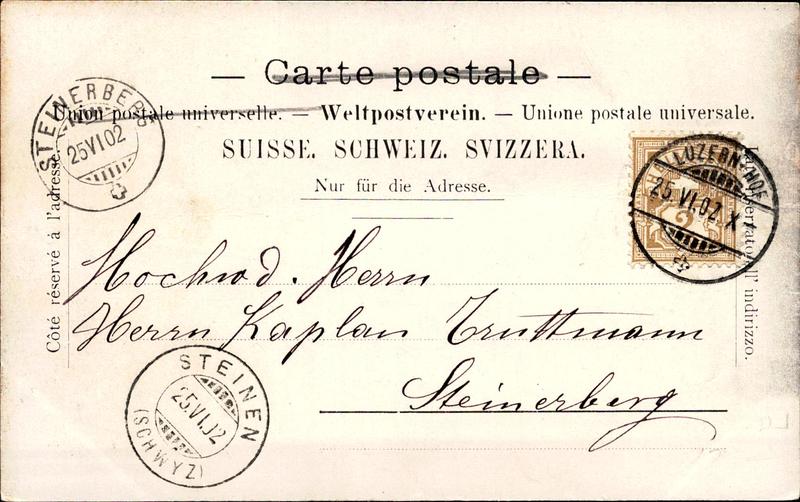 — Carte postale —
Union postale universelle. — Weltpostverein. — Unione postale universale.
SUISSE. SCHWEIZ. SVIZZERA.
Nur für die Adresse.
Côté réservé à l'adresse.
all' indirizzo.
STEINERBERG
25 VI 02
LUZERN-HOF
25.VI.02.X
2
Hochwd. Herrn
Herrn Kaplan Truttmann
Steinerberg
STEINEN
25 VI 02
(SCHWYZ)